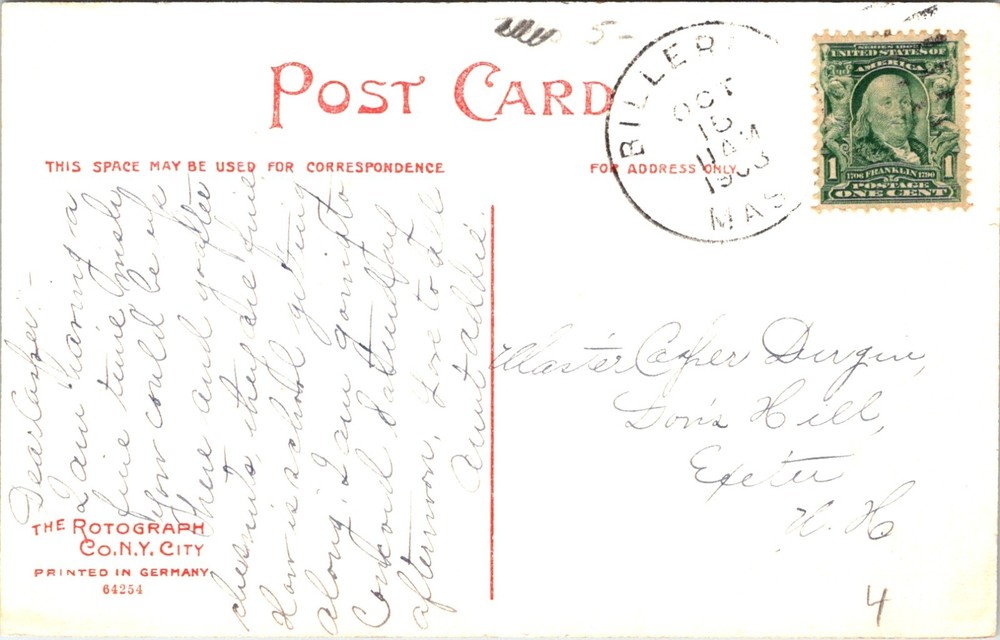 5-
POST CARD
THIS SPACE MAY BE USED FOR CORRESPONDENCE
FOR ADDRESS ONLY
BILLER
OCT
15
MAS
SERIES 1902
UNITED STATES OF
AMERICA
1 1
1706 FRANKLIN 1790
POSTAGE
ONE CENT
Dear Casper:-
I am having a
fine time wish
you could be up
there and go after
chesnuts, they are fine
How is school getting
along. I am going to
Concord Saturday
afternoon. Love to all
Aunt Addie
Master Casper Durgin,
Don's Hill,
Exeter
N. H
THE ROTOGRAPH
CO. N.Y. CITY
PRINTED IN GERMANY.
64254
4